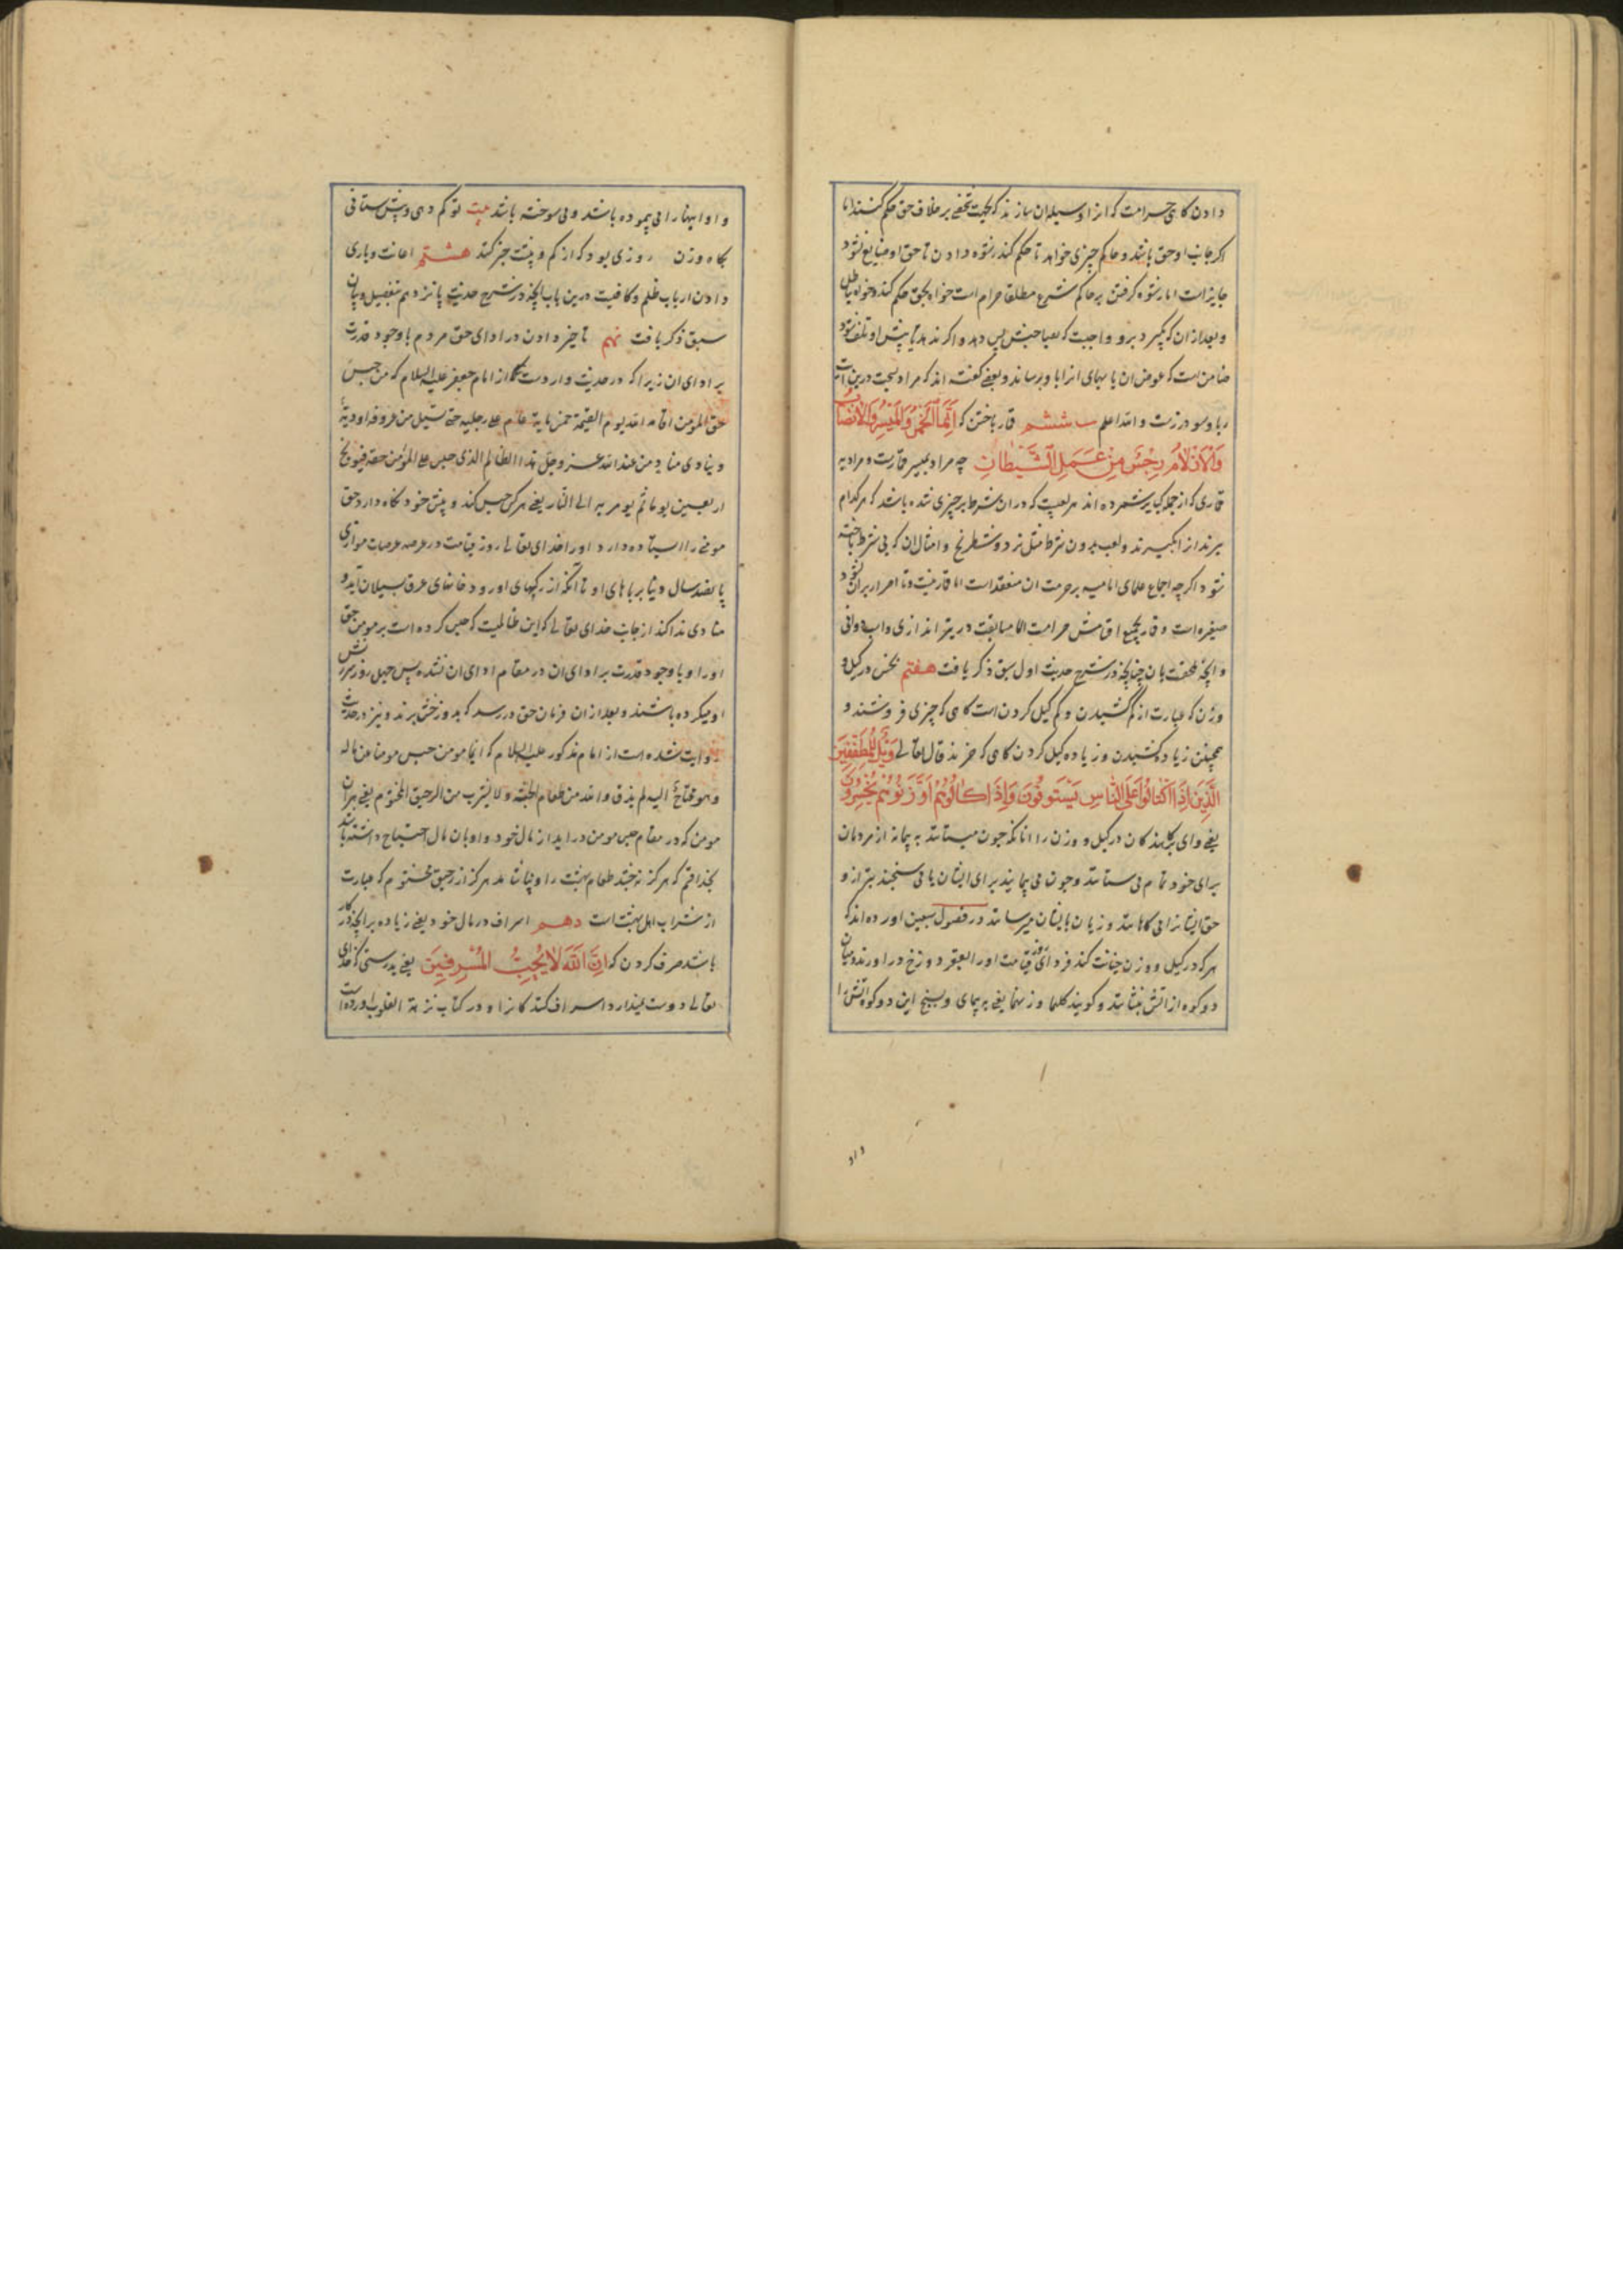 دادن کاهی حرامست که انرا وسیله ان سازند که بجهت شخصی بر خلاف حق حکم کنند اما
اکر جانب او حق باشد و حاکم چیزی خواهد تا حکم کند رشوه دادن تا حق او ضایع نشود
جایز است اما رشوه کرفتن بر حاکم شرع مطلقا حرام است خواه بحق حکم کند و خواه بباطل
و بعد از ان که بگیرد برو واجبست که بصاحبش پس دهد و اکر ندهد تا پیش او تلف شود
ضامن است که عوض ان یا بهای انرا باو برساند و بعضی گفته اند که مراد بسحت درین آیت
ربا و سود زرست و الله اعلم ششم قمار باختن که اِنَّمَا الْخَمْرُ وَالْمَیْسِرُ وَالْاَنْصَابُ
وَالْاَزْلَامُ رِجْسٌ مِنْ عَمَلِ الشَّیْطَانِ چه مراد بمیسر قمارست و مراد به
قماری که از جمله کبایر شمرده اند هر لعبیست که در ان شرط بر چیزی شده باشد که هر کدام
ببرند انرا بگیرند و لعب بدون شرط مثل نرد و شطرنج و امثال ان که بی شرط باخته
شود اکرچه اجماع علمای امامیه بر حرمت ان منعقد است اما قمار نیست و تا اصرار بران نشود
صغیره است و قمار بجمیع اقسامش حرامست الا مسابقت در تیر اندازی و اسب دوانی
و انچه ملحقست بان چنانچه در شرح حدیث اول سبق ذکر یافت هفتم بخس در کیل و
وزن که عبارت از کم کشیدن و کم کیل کردن است کاهی که چیزی فروشند و
همچنین زیاد کشیدن و زیاده کیل کردن کاهی که خرند قال تعالی وَیْلٌ لِلْمُطَفِّفِینَ
الَّذِینَ اِذَا اکْتَالُوا عَلَی النَّاسِ یَسْتَوْفُونَ وَاِذَا کَالُوهُمْ اَوْ وَزَنُوهُمْ یُخْسِرُونَ
یعنی وای بر کاهندکان در کیل و وزن را انانکه چون میستانند به پیمانه از مردمان
برای خود تمام می ستانند و چون می پیمایند برای ایشان یا می سنجند بترازو
حق ایشانرا می کاهانند و زیان بایشان میرسانند در فصول سبعین اورده اند که
هر که در کیل و وزن خیانت کند فردای قیامت او را بقعر دوزخ در اورند و میان
دو کوه از اتش بنشانند و کویند کلها وزنها یعنی به پیمای و بسنج این دو کوه اتش را
واد
و او اینها را می پیموده باشد و می سوخته باشد بیت تو کم دهی و بیش ستانی
بکاه وزن روزی بود که از کم و بیشت خبر کنند هشتم اعانت و یاری
دادن ارباب ظلم و کافیست درین باب انچه در شرح حدیث پانزدهم بتفصیل و بیان
سبق ذکر یافت نهم تاخیر دادن در ادای حق مردم با وجود قدرت
بر ادای ان زیرا که در حدیث واردست که از امام جعفر علیه السلام که من حبس
حق المؤمن اقامه الله یوم القیمة خمس مایة عام علی رجلیه حتی یسیل من عروقه اودیة
و ینادی مناد من عند الله عز و جل هذا الظالم الذی حبس علی المؤمن حقه فیوبخ
اربعین یوما ثم یومر به الی النار یعنی هر کس حبس کند و پیش خود نکاه دارد حق
مومنی را ایستاده دارد او را خدای تعالی روز قیامت در عرصه عرصات موازی
پانصد سال دنیا بر پاهای او تا انکه از رکهای او رودخانهای عرق بسیلان آید و
منادی ندا کند از جانب خدای تعالی که این ظالمیست که حبس کرده است بر مومن حق
او را و با وجود قدرت بر ادای ان در مقام ادای ان نشده پس چهل روز سرزنش
او میکرده باشند و بعد از ان فرمان حق در رسد که بدوزخش برند و نیز در حدیث
روایت شده است از امام مذکور علیه السلام که ایما مومن حبس مومنا عن ماله
و هو محتاج الیه لم یذق والله من طعام الجنة و لا یشرب من الرحیق المختوم یعنی هر ان
مومن که در مقام حبس مومن در اید از مال خود و او بان مال احتیاج داشته باشد
بخدا قسم که هرکز نچشد طعام بهشت را و نیاشامد هرکز از رحیق مختوم که عبارت
از شراب اهل بهشت است دهم اسراف در مال خود یعنی زیاده بر انچه در کار
باشد صرف کردن که اِنَّ اللّٰهَ لَا یُحِبُّ الْمُسْرِفِینَ یعنی بدرستی که خدای
تعالی دوست نمیدارد اسراف کنندکانرا و در کتاب نزهة القلوب اورده است